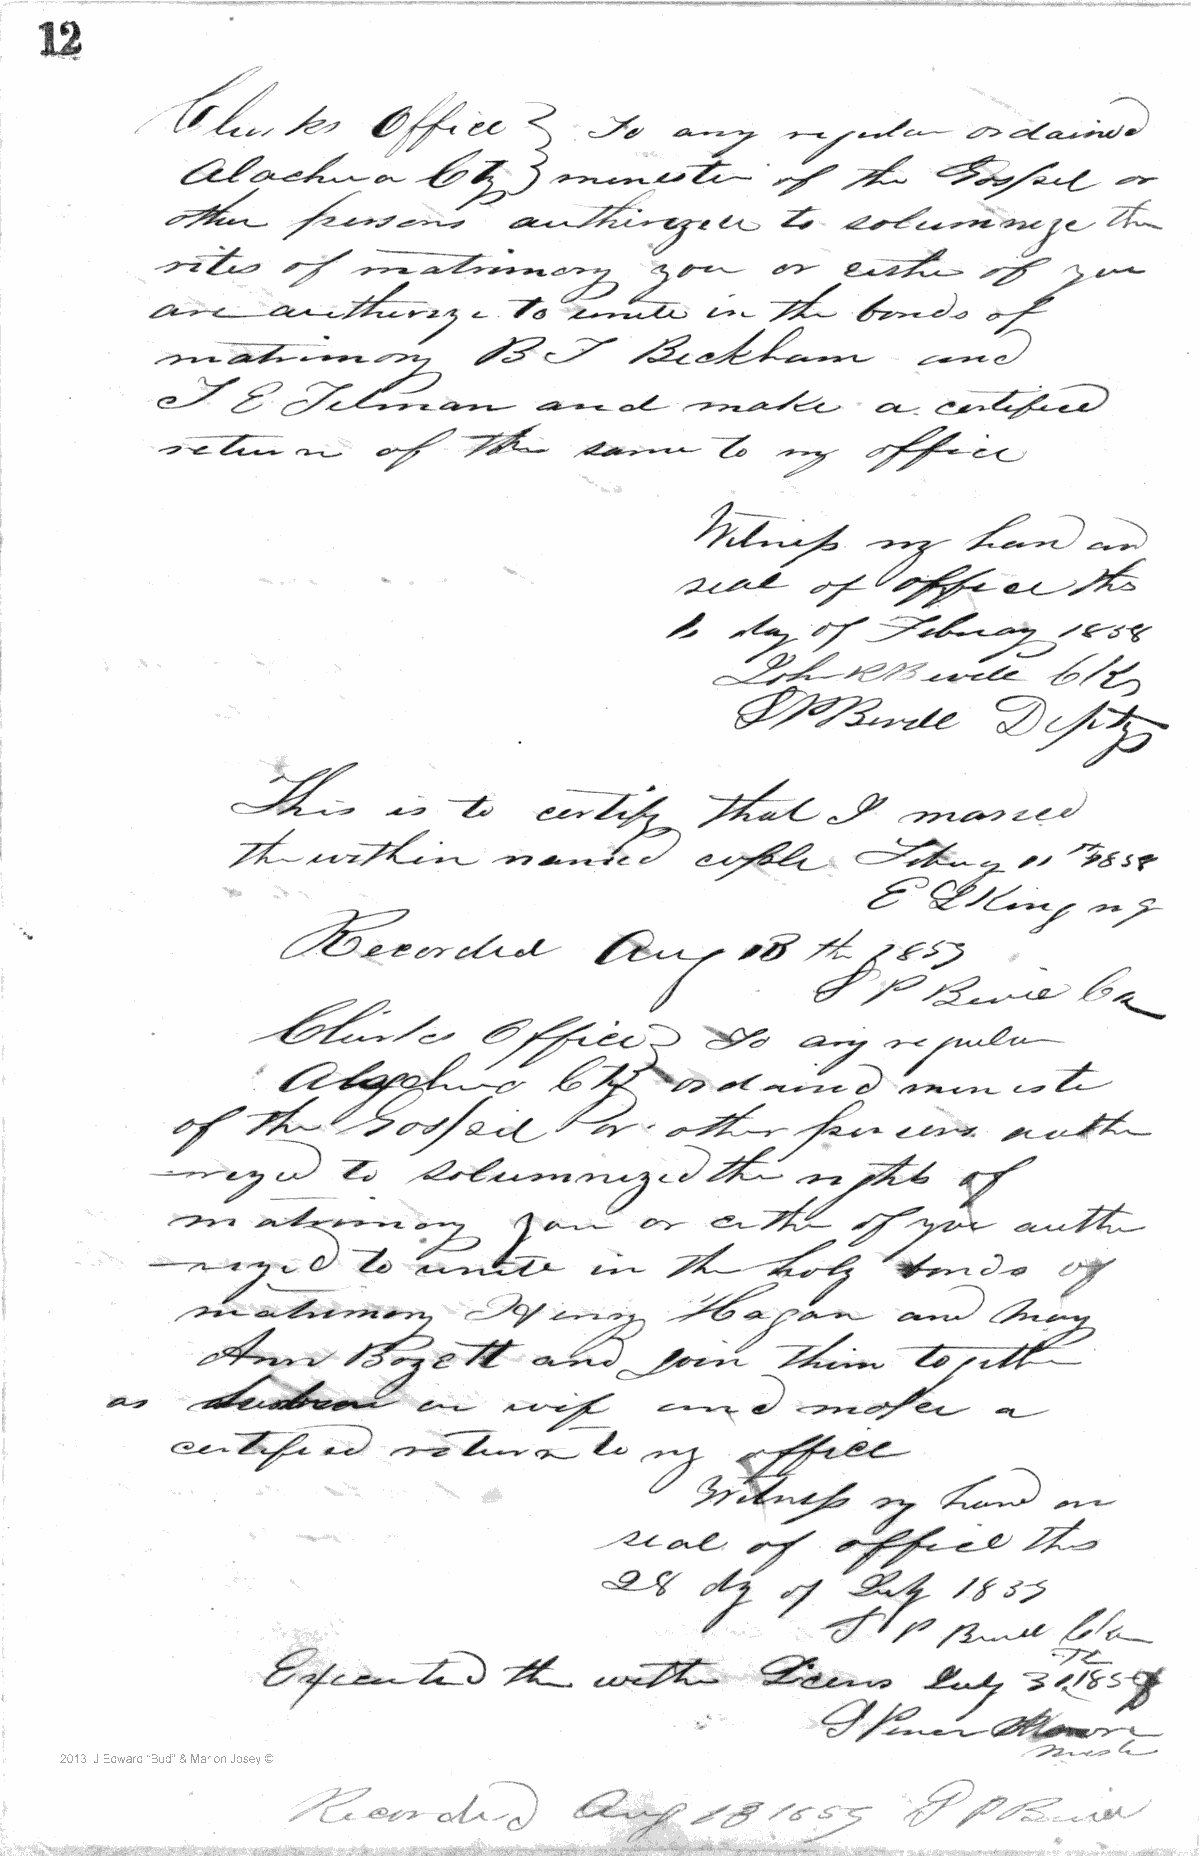 12
Clerks Office } To any regular ordained
Alachua Cty } minester of the Gospel or
other persons autherized to solumnize the
rites of matrimony you or eather of you
are autherize to unite in the bonds of
matrimony B T Beckham and
T E Tilman and make a certified
return of the same to my office
Witness my hand an
seal of office this
day of Februay 1858
John R Bevill Clk
S P Bevill Depty
This is to certify that I married
the within named cople Febuay 11th 1858
E L King
Recorded Aug 18 th 1859
S P Bevill Clk
Clerks Office } To any regular
Alachua Cty } ordained ministe
of the Gospel or other persons authe
rized to solumnized the rights of
matrimony you or eithe of you authe
rized to unite in the holy bonds of
matrimony Henry Hagan and May
Ann Bozett and join them togethe
as an wife and make a
certified return to my office
Witness my hand an
seal of office this
28 dy of July 1859
S P Bevill Clk
Executed the within Licens July 31th 1859
Moore
2013 J Edward "Bud" & Marion Josey ©
Recorded Aug 18 1859 S P Bevill